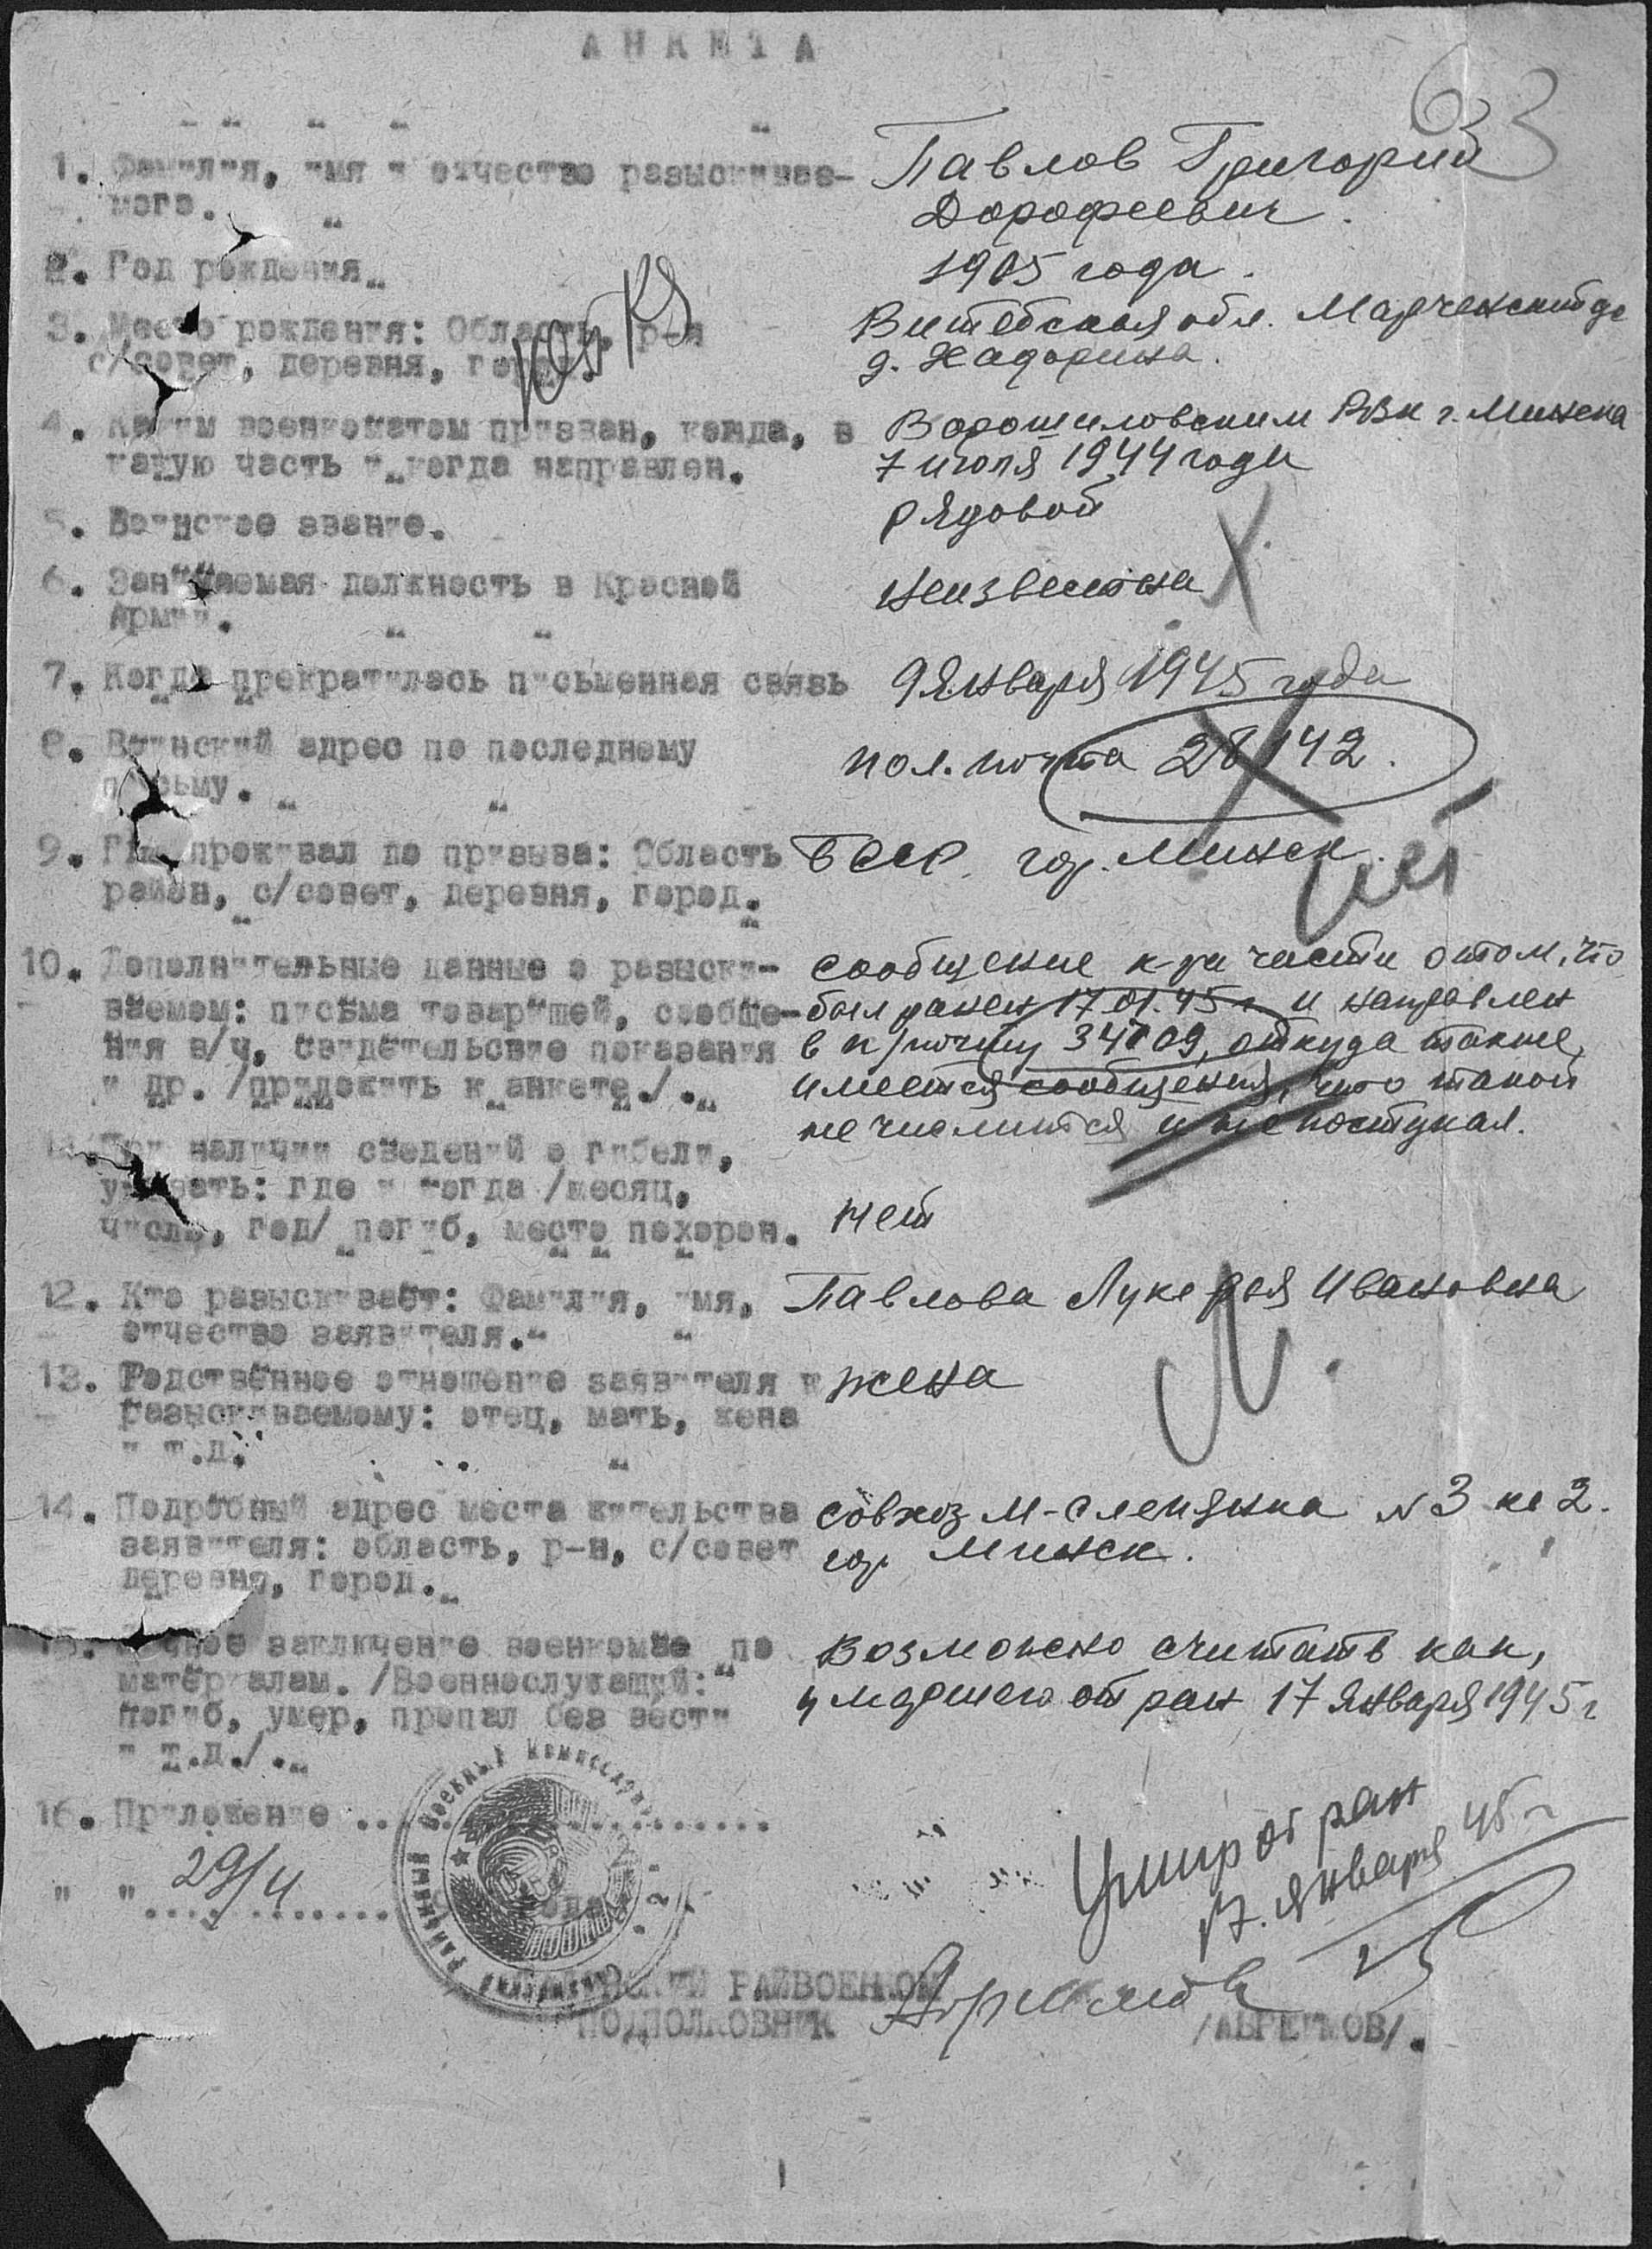 АНКЕТА
63
1. Фамилия, имя и отчество разыскивае- Павлов Григорий
мого. Дорофеевич.
2. Год рождения 1905 года.
3. Место рождения: Область, р-н Витебская обл.
с/совет, деревня, город. д.
4. Каким военкоматом призван, когда, в Ворошиловским РВК г. Минска
какую часть и когда направлен. 7 июля 1944 года
5. Воинское звание. рядовой
6. Занимаемая должность в Красной неизвестна
Армии.
7. Когда прекратилась письменная связь 9 января 1945 года
8. Воинский адрес по последнему пол. почта 28142.
письму.
9. Где проживал до призыва: Область БССР. гор. Минск.
район, с/совет, деревня, город.
10. Дополнительные данные о разыски- сообщение к-ра части о том, что
ваемом: письма товарищей, сообще- был ранен 17.01.45 г и направлен
ния в/ч, свидетельские показания в п/почту 34709, откуда также,
и др. /приложить к анкете/. имеется сообщения, что такой
не числится и не поступал.
11. При наличии сведений о гибели,
указать: где и когда /месяц,
число, год/ погиб, место похорон. нет
12. Кто разыскивает: Фамилия, имя, Павлова Лукерья Ивановна
отчество заявителя.
13. Родственное отношение заявителя к жена
разыскиваемому: отец, мать, жена
и т.д.
14. Подробный адрес места жительства совхоз М-Слепянка № 3 кв 2.
заявителя: область, р-н, с/совет гор Минск.
деревня, город.
15. Личное заключение военкома по Возможно считать как,
материалам. /Военнослужащий: умершего от ран 17 января 1945 г
погиб, умер, пропал без вести
и т.д./.
16. Приложение ....................
Умир от ран
17. января 45 г
" " 29/4 ............ года
Военный Комиссариат
РАЙВОЕНКОМ
ПОДПОЛКОВНИК /АБРЕИМОВ/.